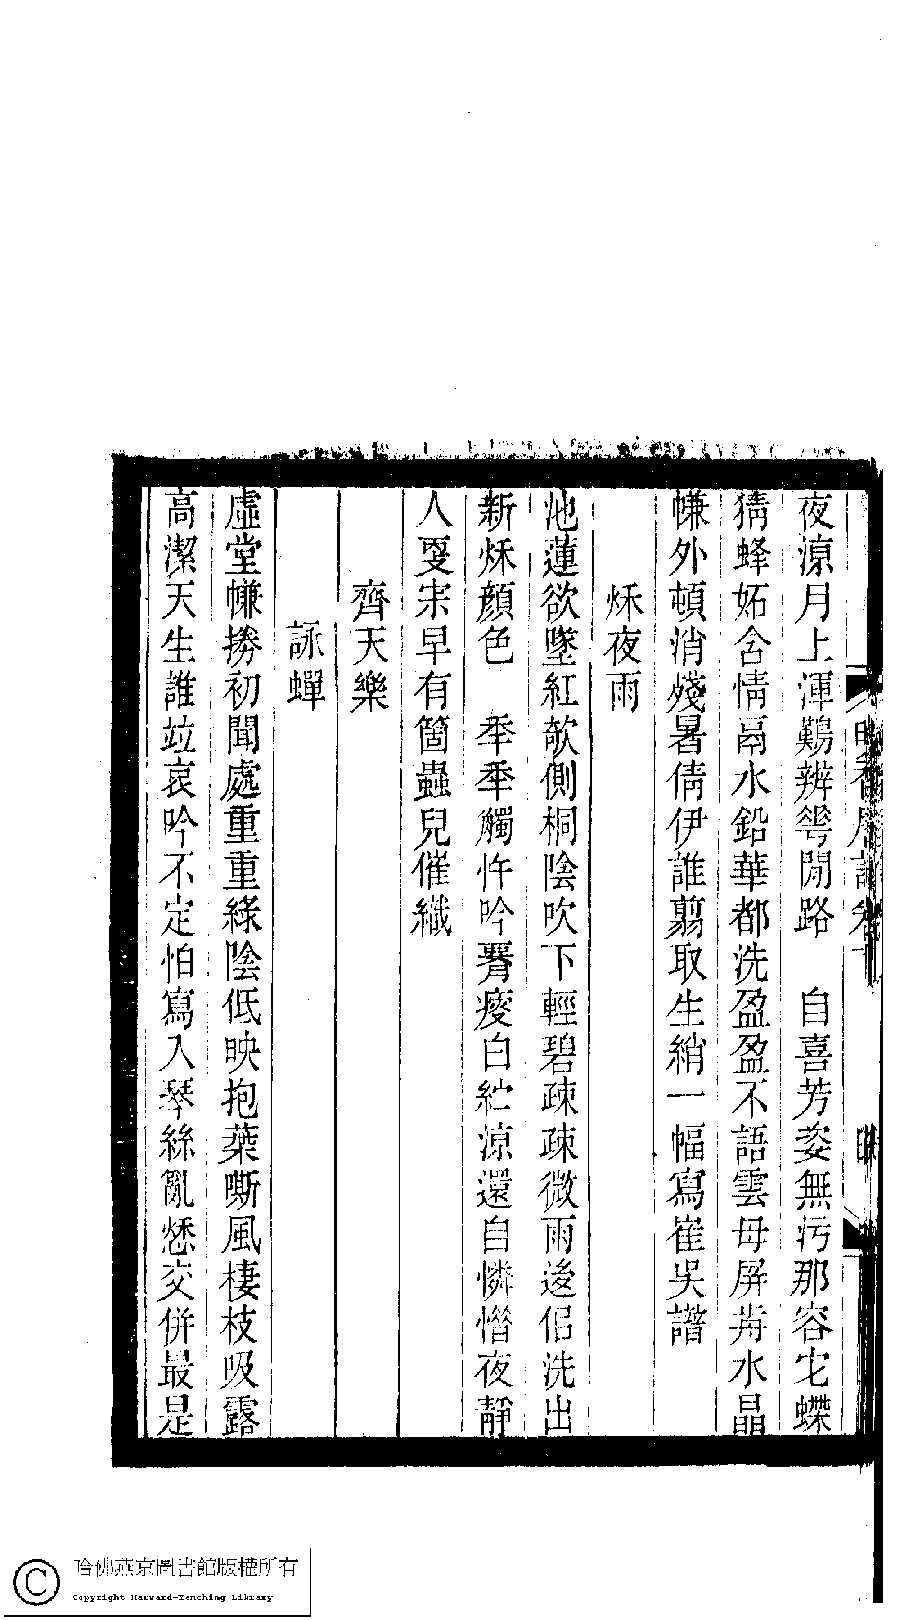 夜涼月上渾難辨雩閒路　自喜芳姿無污那容它蝶
猜蜂妬含情鬲水鉛華都洗盈盈不語雲母屏歬水晶
㡘外頓消殘暑倩伊誰翦取生綃一幅寫崔吳譜
秌夜雨
池蓮欲墜紅欹側桐陰吹下輕碧疎疎微雨後侣洗出
新秌顏色　秊秊觸忤吟脣瘦白紵涼還自憐憯夜靜
人㪅未早有箇蟲兒催織
齊天樂
詠蟬
虛堂㡘捲初聞處重重綠陰低映抱葉嘶風棲枝吸露
高潔天生誰竝哀吟不定怕寫入琴絲亂愁交併最是
哈佛燕京圖書館版權所有
Copyright Harvard-Yenching Library